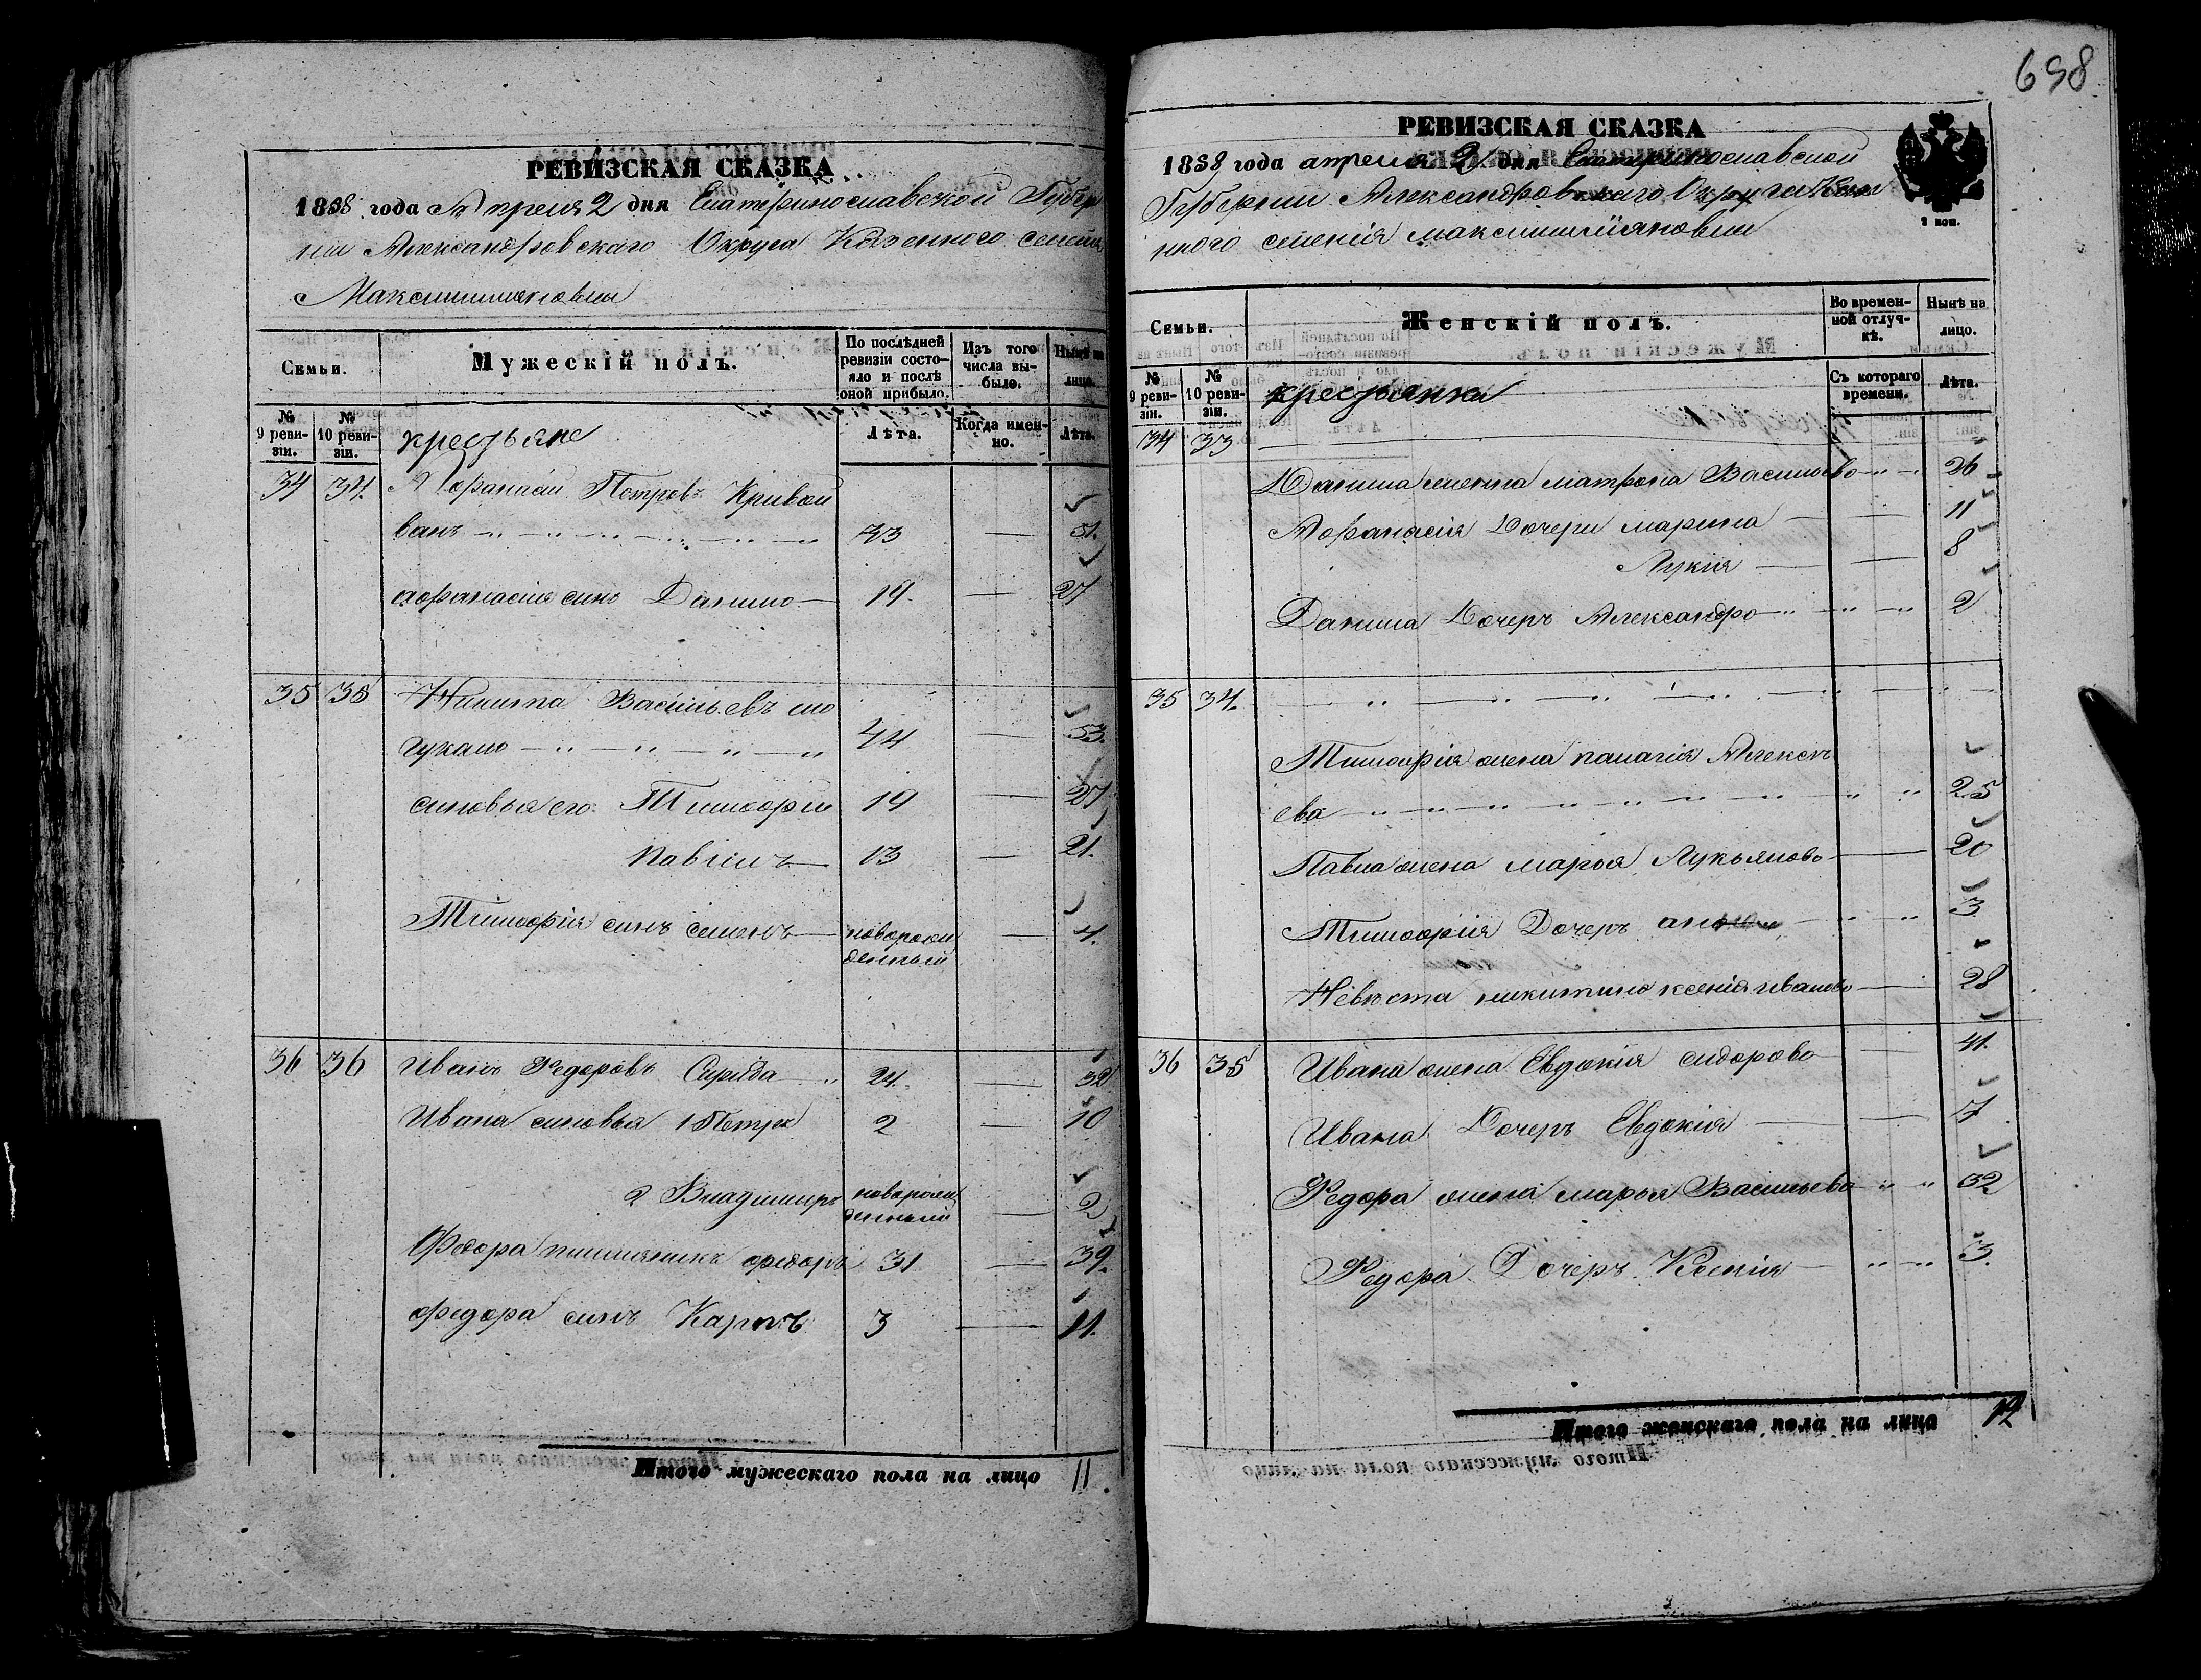 698
РЕВИЗСКАЯ СКАЗКА
1858 года Апреля 2 дня Екатеринославской Губер
нии Александровскаго Округа Казенного селения
Максимилиановки
Семьи.
Мужескій полъ.
По послѣдней ревизіи состо-
яло и послѣ
оной прибыло.
Изъ того
числа вы-
было.
Нынѣ на
лицо.
№ 9 реви-
зіи.
№ 10 реви-
зіи.
крестьяне
Лѣта.
Когда имен-
но.
Лѣта.
34 34. Афанасій Петровъ Кривои
ванъ 43 — 51.
афанасия синъ Данило — 19. — 27
35 35 Никита Васильевъ
44 — 53.
синовья его: Тимофри 19 — 27
Павілъ 13 — 21.
Тимофрія синъ семенъ новорож — 4.
денный
36 36 Иванъ Федоровъ Сирида 24. — 32
Ивана синовья 1 Петръ 2 — 10
2 Владимиръ новорож — 2
денный
Федора племяникъ федоръ 31 — 39.
федора синъ Карпъ 3 — 11.
Итого мужескаго пола на лицо 11.
РЕВИЗСКАЯ СКАЗКА
1858 года апреля 2 дня Екатеринославской
Губернии Александровскаго Округа Казе
нного селенія максимилїяновки
2 коп.
Семьи.
Женскій полъ.
Во времен-
ной отлуч-
кѣ.
Нынѣ на
лицо.
№ 9 реви-
зіи.
№ 10 реви-
зіи.
крестьянки
Съ котораго
времени.
Лѣта.
34 33
Данила жена матрона Васильево 26
Афанасія Дочери марина — 11
Лукия — 8
Данила Дочеръ Александро 2
35 34.
Тимофрія жена палагія Алексѣ
ева 25
Павла жена марья Лукьяново 20
Тимофрія Дочеръ 3
Невѣста никитина ксенія иваново 28
36 35 Ивана жена Евдокія сидорово 41.
Ивана Дочеръ Евдокія — 7
Федора жена марья Васильево 32
Федора Дочеръ Ксенія 3.
Итого женскаго пола на лицо 12